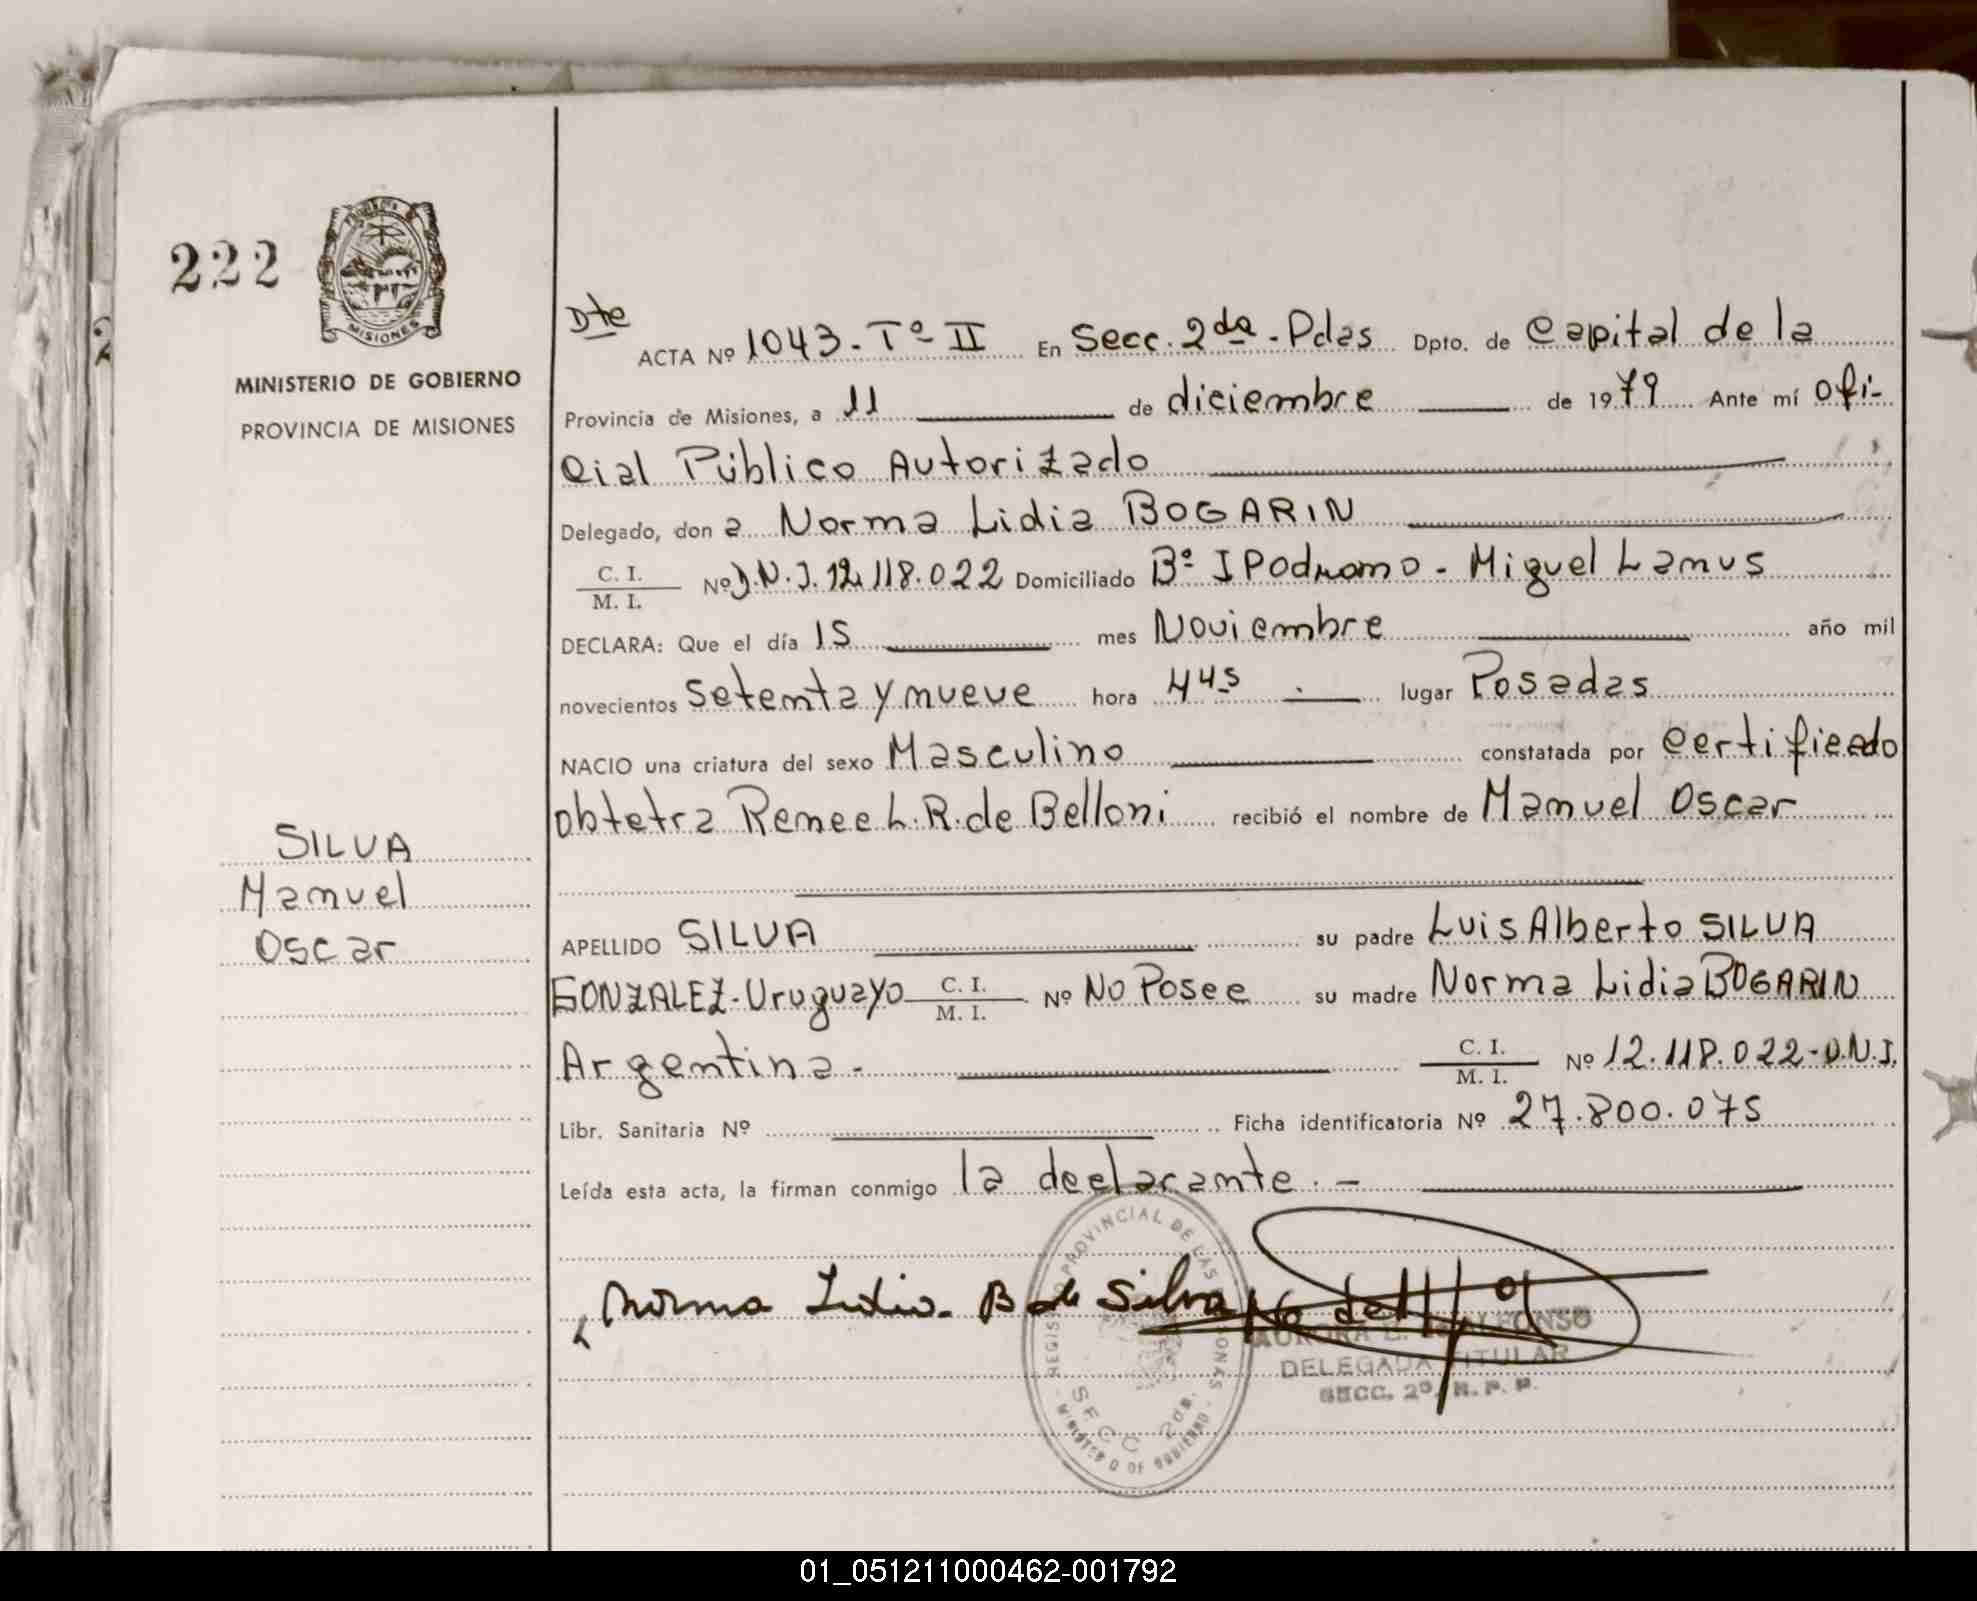 222
MISIONES
MINISTERIO DE GOBIERNO
PROVINCIA DE MISIONES
SILVA
Manuel
Oscar
Dte
ACTA Nº 1043-Tº II En Secc. 2da - Pdas Dpto. de Capital de la
Provincia de Misiones, a 11 de diciembre de 1979 Ante mí Ofi-
cial Público Autorizado
Delegado, don a Norma Lidia BOGARIN
C. I.
M. I. Nº D.N.I. 12.118.022 Domiciliado Bº IPodromo - Miguel Lanus
DECLARA: Que el día 15 mes Noviembre año mil
novecientos setenta y nueve hora 4 45 lugar Posadas
NACIO una criatura del sexo Masculino constatada por Certificado
obtetra Renee L. R. de Belloni recibió el nombre de Manuel Oscar
APELLIDO SILVA su padre Luis Alberto SILVA
GONZALEZ - Uruguayo C. I. M. I. Nº No Posee su madre Norma Lidia BOGARIN
Argentina - C. I. M. I. Nº 12.118.022 - D.N.I.
Libr. Sanitaria Nº Ficha identificatoria Nº 27.800.075
Leída esta acta, la firman conmigo la declarante. -
Norma Lidia B de Silva
REGISTRO PROVINCIAL DE LAS PERSONAS
MINISTERIO DE GOBIERNO
SECC 2da.
AURORA E. ALFONSO
DELEGADA TITULAR
SECC. 2º R. P. P.
01_051211000462-001792